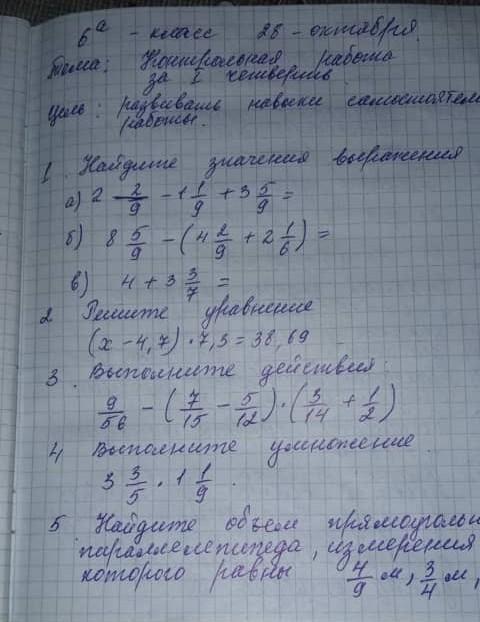 6 а - класс 28 - октября.
Тема: Контрольная работа
за I четверть
Цель: развивать навыки самостоятель
работы.
1. Найдите значения выражения
а) 2 2/9 - 1 1/9 + 3 5/9 =
б) 8 5/9 - (4 2/9 + 2 1/6) =
в) 4 + 3 3/7 =
2 Решите уравнение
(х - 4,7) · 7,3 = 38,69
3. Выполните действия:
9/56 - (7/15 - 5/12) · (3/14 + 1/2)
4 Выполните умножение.
3 3/5 · 1 1/9.
5 Найдите объем прямоуголь
параллелепипеда, измерения
которого равны 4/9 м, 3/4 м,